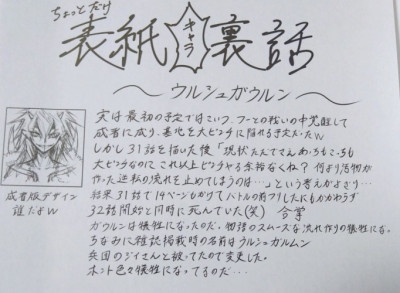 ちょっとだけ
表紙キャラ裏話
～ウルシュガウルン～
実は最初の予定ではこいつ、フーとの戦いの中覚醒して
成者に成り、基地を大ピンチに陥れる予定だったw
しかし31話を描いた後「現状たんてさんあっちもこっちも
大ピンチなのにこれ以上ピンチる余裕なくね？何より活物が
作った逆転の流れを止めてしまうのは…」という考えがまさり…
結果31話で14ページもかけてバトルの前フリしたにもかかわらず
32話開始と同時に死んでいた(笑) 合掌
ガウルンは犠牲になったのだ、物語のスムーズな流れ作りの犠牲にな。
ちなみに雑誌掲載時の名前はウルシュガルムン
兵団のジイさんと被ってたので変更した。
ホント色々犠牲になってるのだ…
成者版デザイン
誰だよw